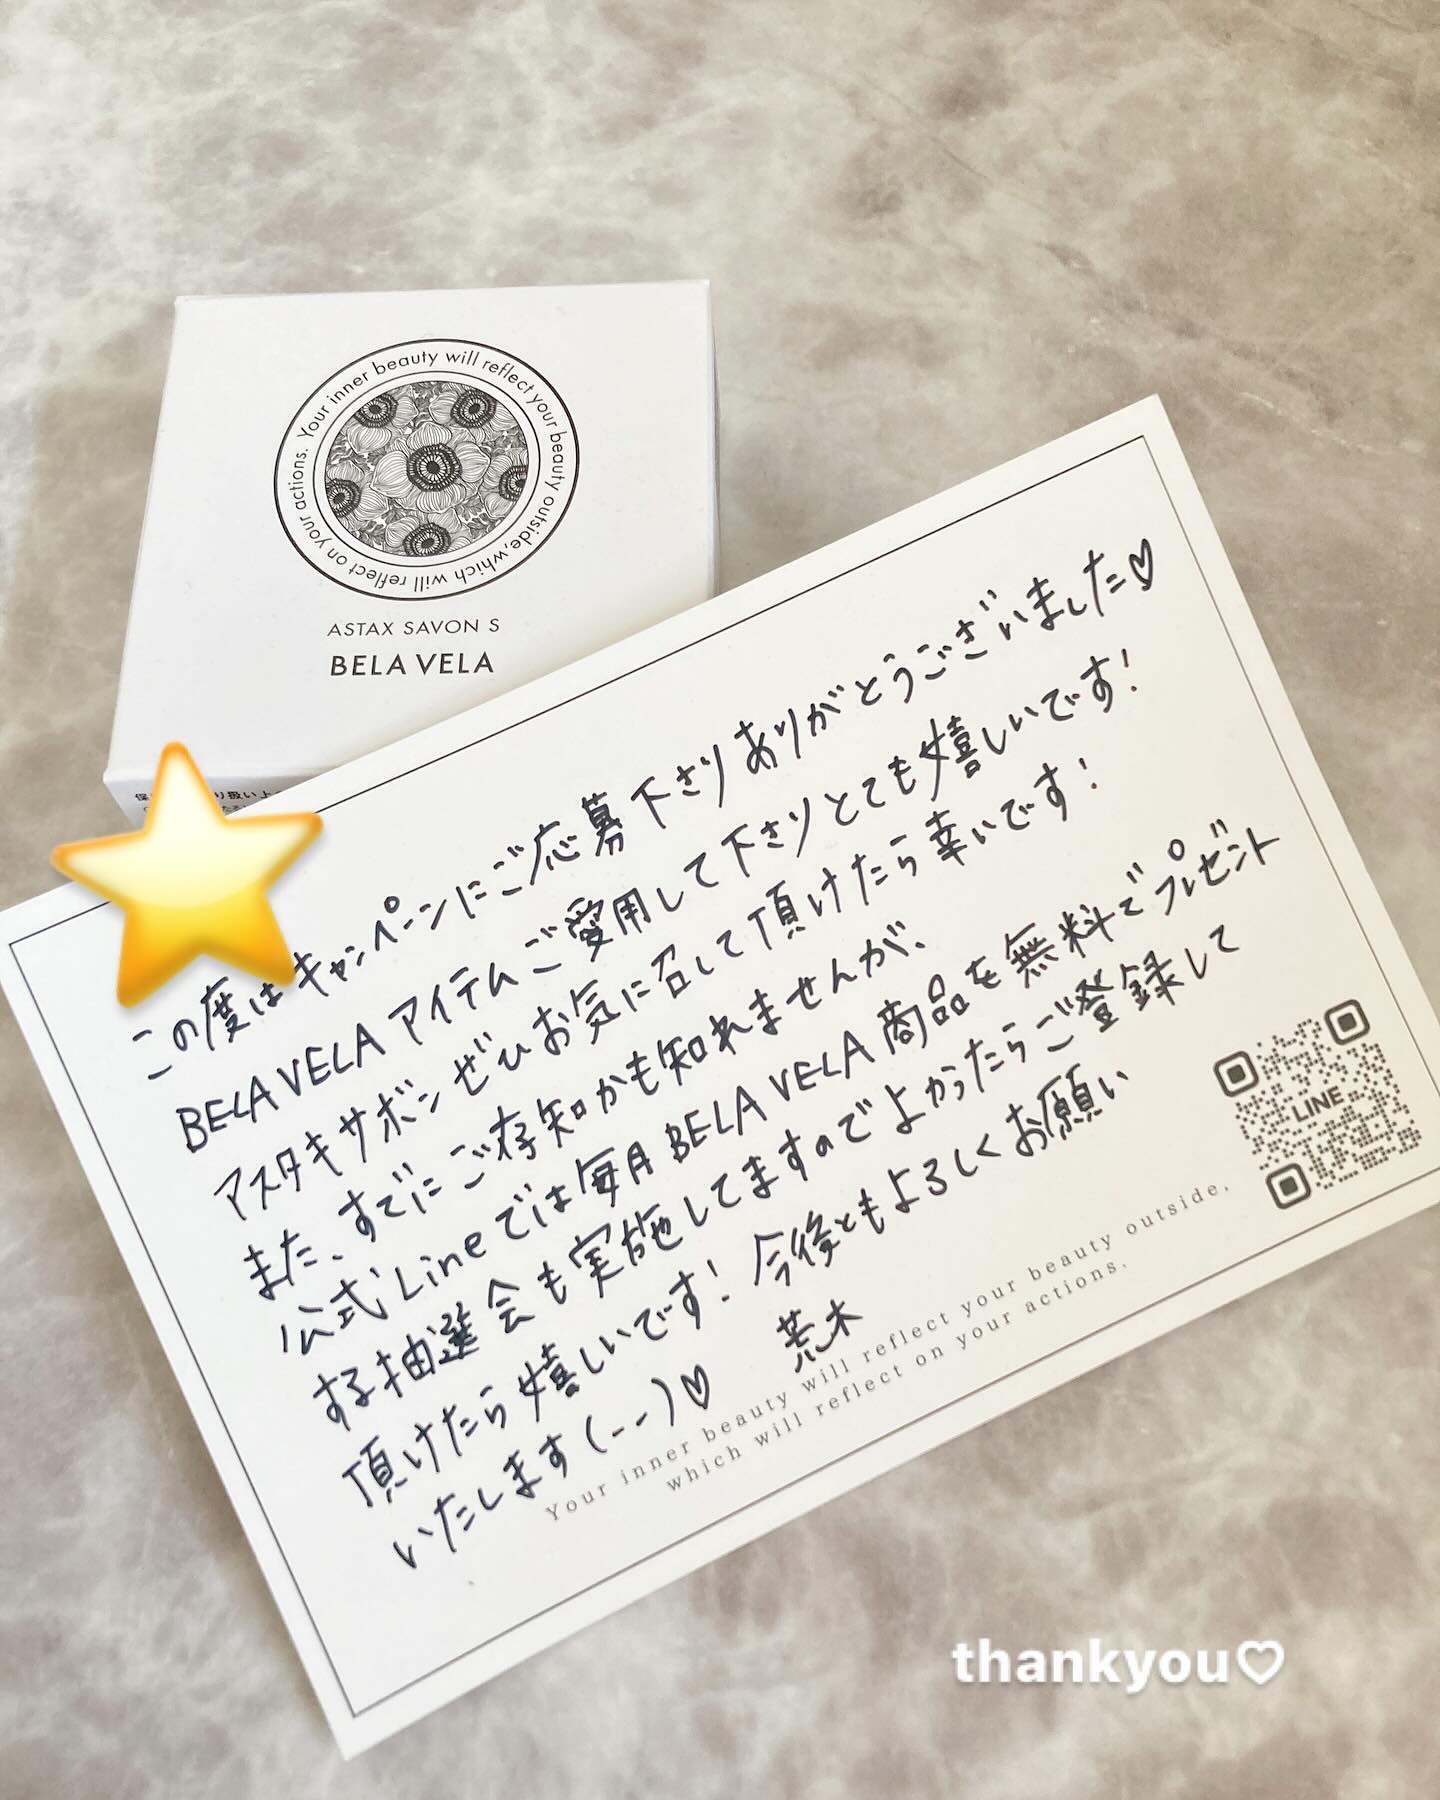 Your inner beauty will reflect your beauty outside, which will reflect on your actions.
ASTAX SAVON S
BELA VELA
この度はキャンペーンにご応募下さりありがとうございました♡
BELA VELA アイテムご愛用して下さりとても嬉しいです!
アスタキサボンぜひお気に召して頂けたら幸いです!
また、すでにご存知かも知れませんが、
公式Lineでは毎月BELA VELA商品を無料でプレゼント
する抽選会も実施してますのでよかったらご登録して
頂けたら嬉しいです! 今後ともよろしくお願い
いたします(--)♡ 荒木
LINE
Your inner beauty will reflect your beauty outside,
which will reflect on your actions.
thankyou♡